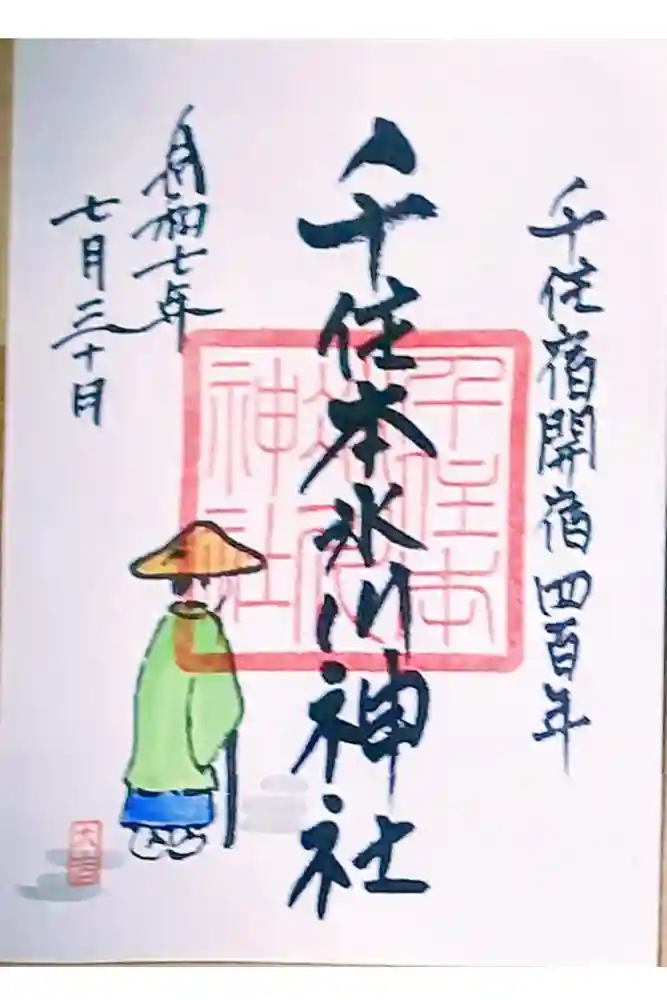 千住宿開宿四百年
千住本氷川神社
令和七年
七月三十日
千住本
氷川
神社
大吉